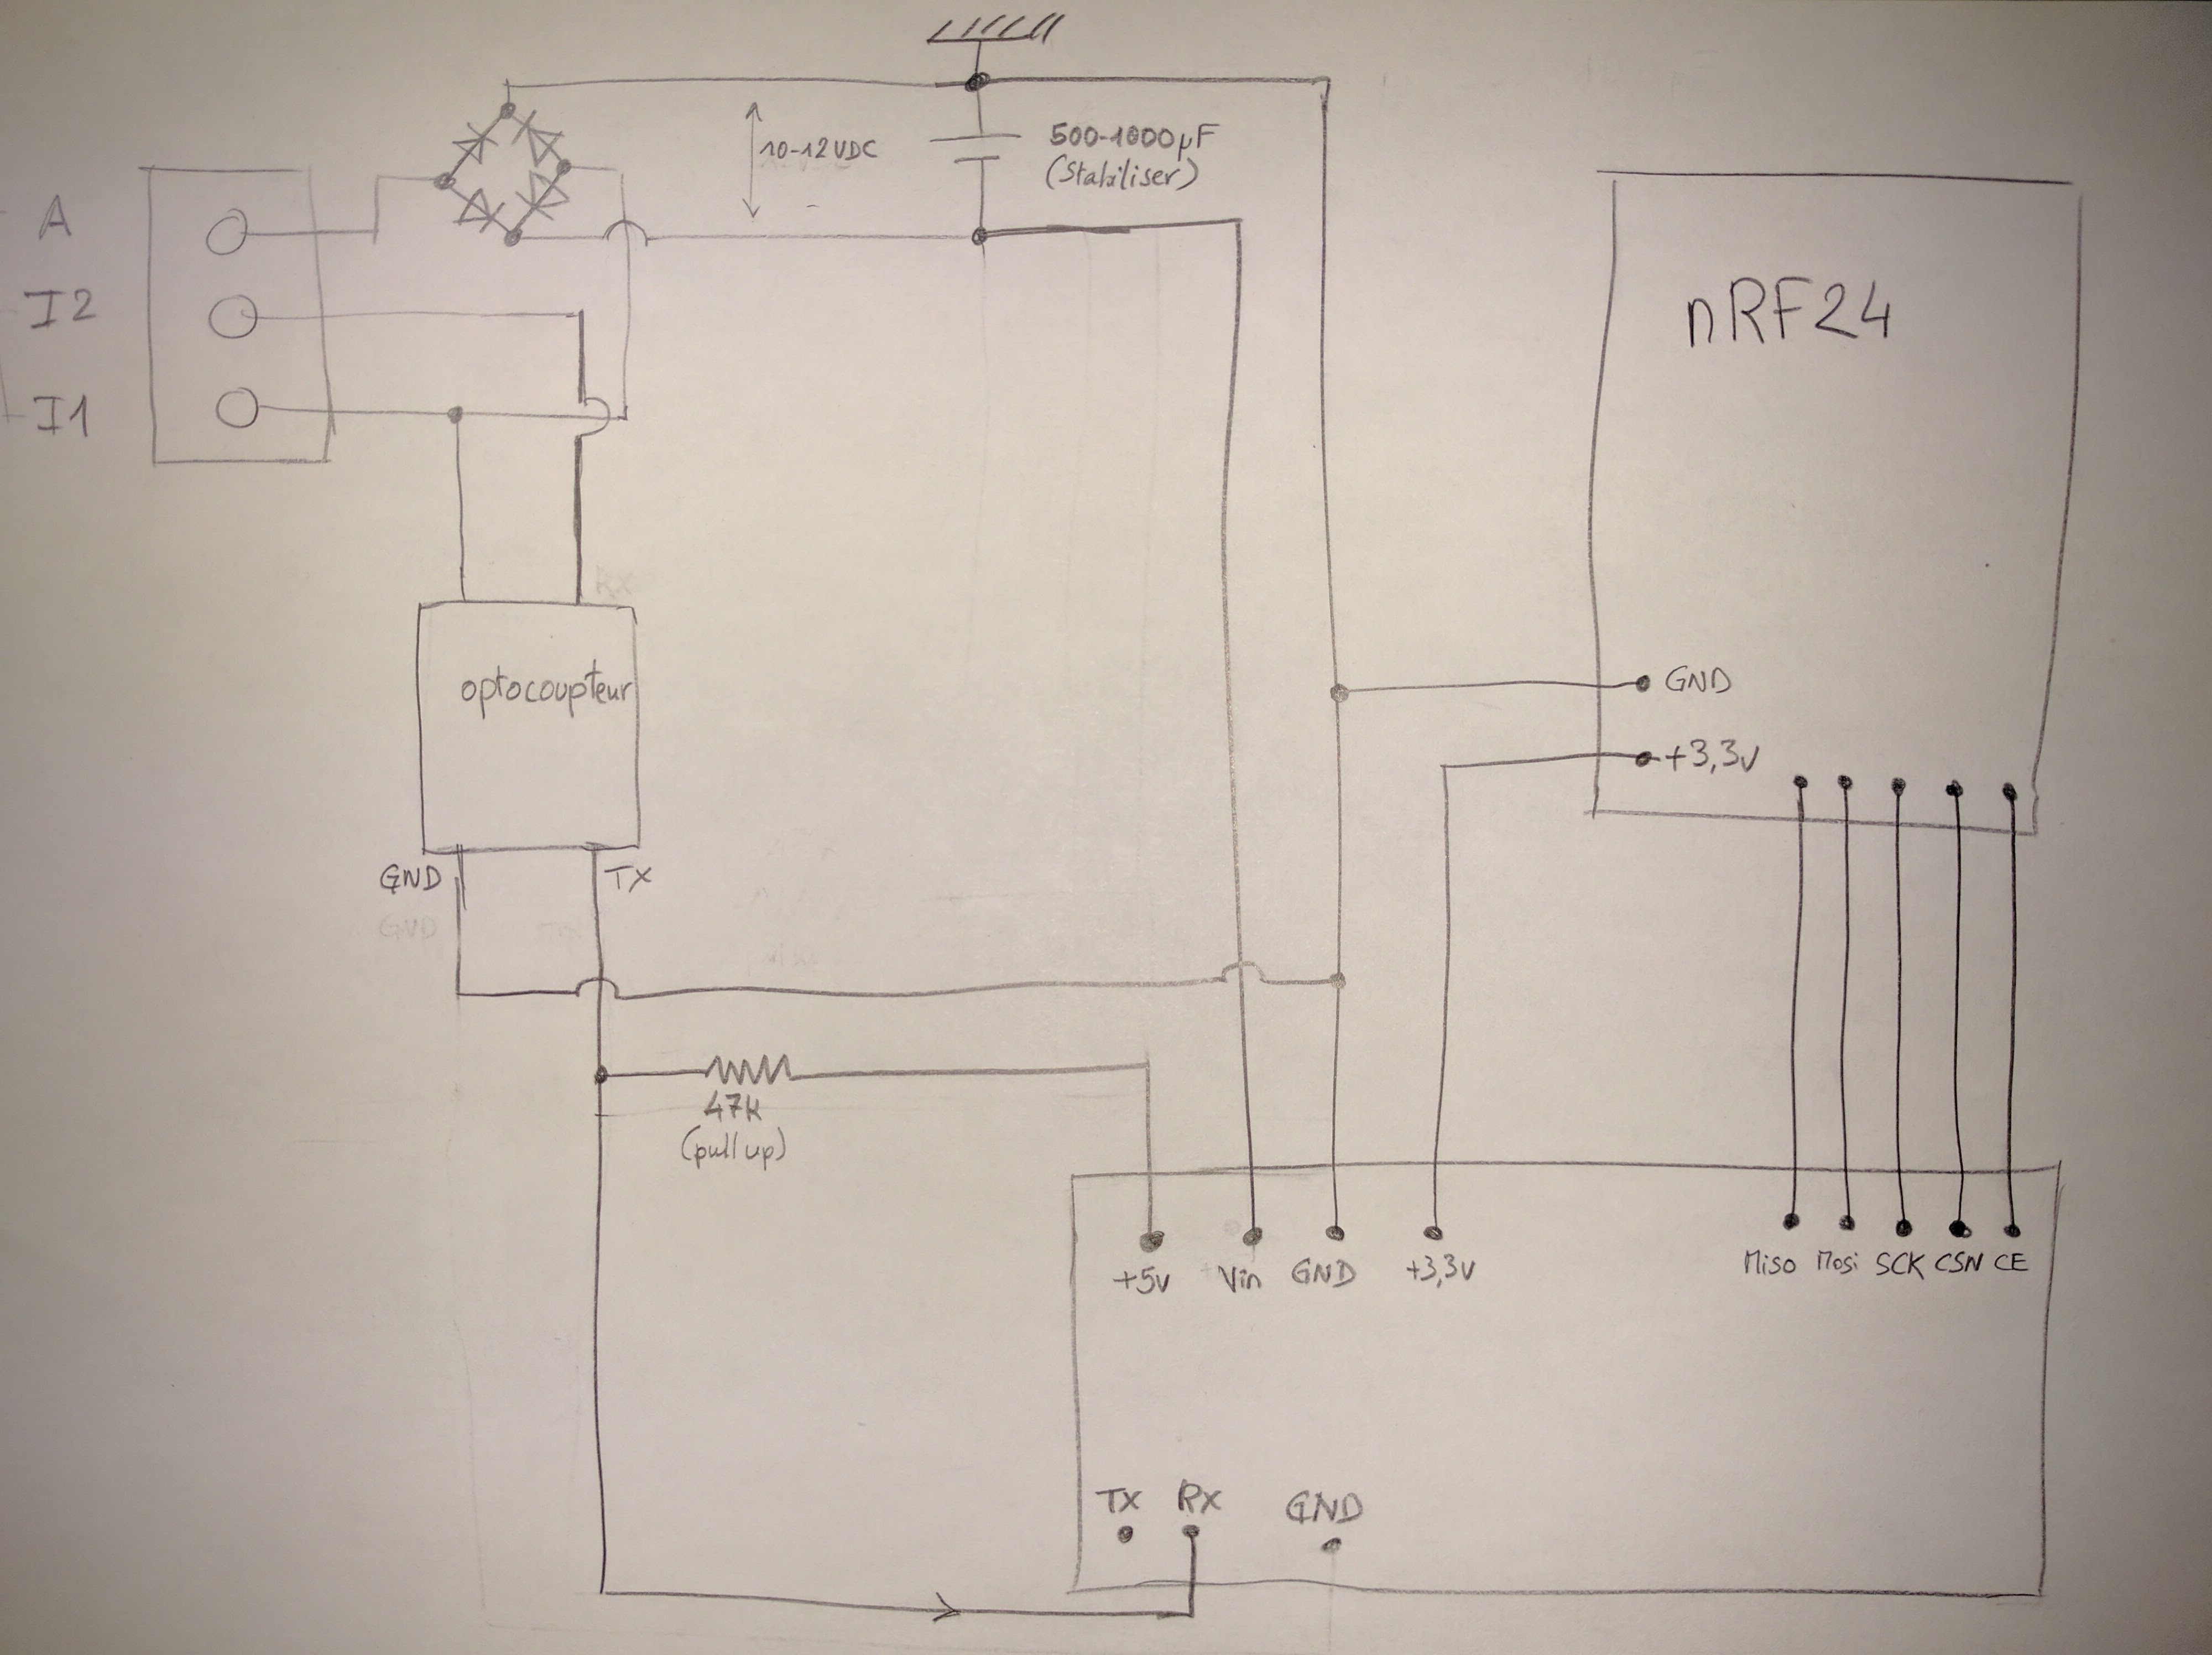 A
I2
I1
10-12VDC
500-1000µF
(Stabiliser)
nRF24
GND
+3,3v
optocoupteur
RX
GND
TX
GND
47K
(pull up)
+5v
Vin
GND
+3,3v
Miso
Mosi
SCK
CSN
CE
TX
RX
GND